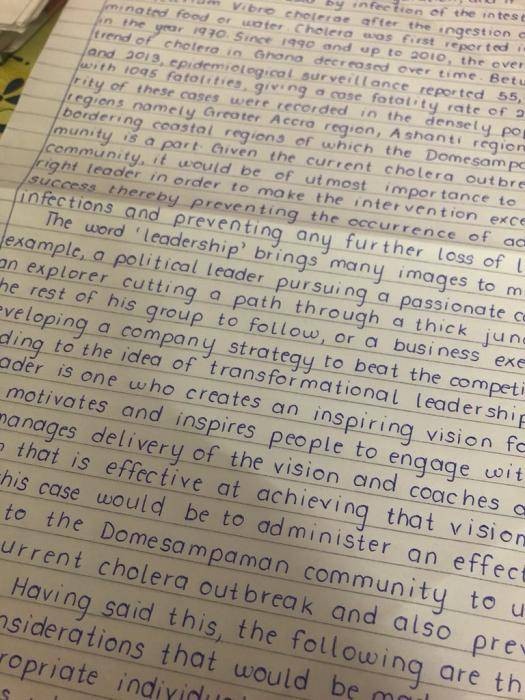 by infection of the intes
Vibro cholerae after the ingestion o
minated food or water. Cholera was first reported i
in the year 1970. Since 1990 and up to 2010, the over
trend of cholera in Ghana decreased over time. Betw
and 2013, epidemiological surveillance reported 55,
with 1095 fatalities, giving a case fatality rate of 2
rity of these cases were recorded in the densely po
regions namely Greater Accra region, Ashanti region
bordering coastal regions of which the Domesampa
munity is a part. Given the current cholera outbre
community, it would be of utmost importance to
right leader in order to make the intervention exce
success thereby preventing the occurrence of ad
infections and preventing any further loss of l
The word 'leadership' brings many images to m
example, a political leader pursuing a passionate c
an explorer cutting a path through a thick jung
he rest of his group to follow, or a business exe
eveloping a company strategy to beat the competi
ding to the idea of transformational leadership
ader is one who creates an inspiring vision fo
motivates and inspires people to engage wit
manages delivery of the vision and coaches a
that is effective at achieving that vision
his case would be to administer an effect
to the Domesampaman community to u
urrent cholera outbreak and also prev
Having said this, the following are th
nsiderations that would be
ropriate individu